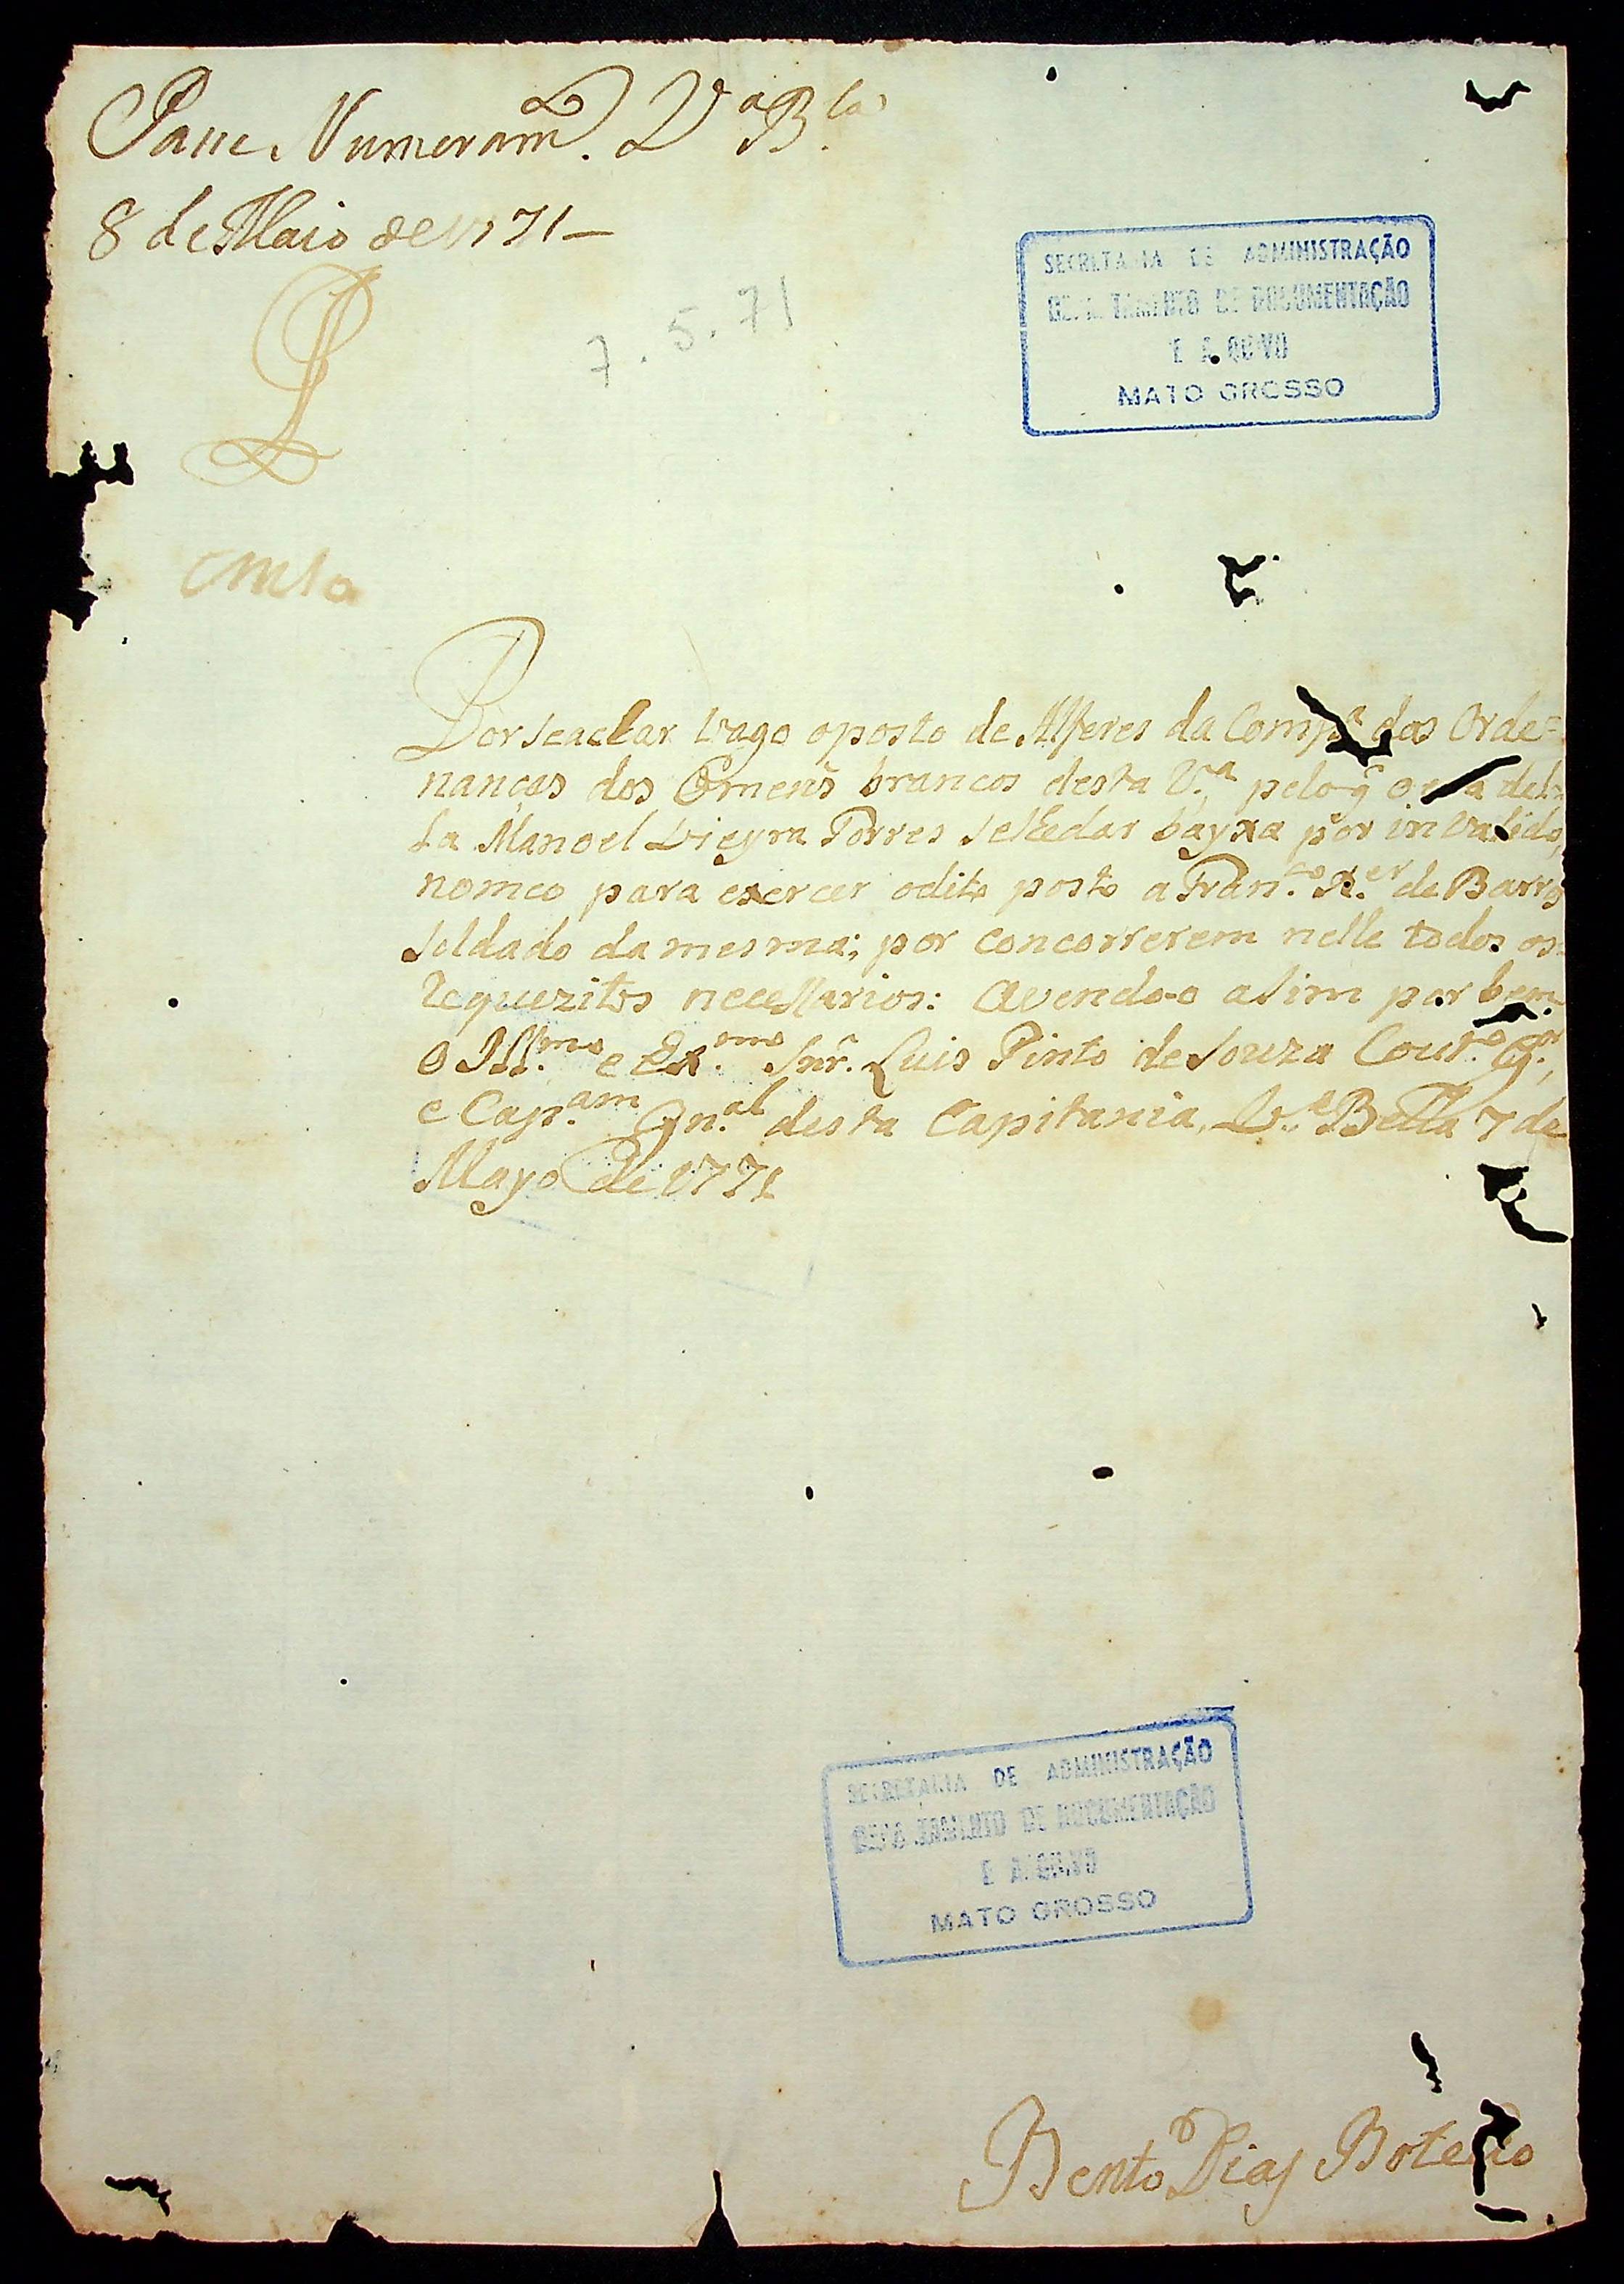 Passe Numeram.to V.a B.la
8 de Maio de 1771—
7.5.71
SECRETARIA DE ADMINISTRAÇÃO
DEPARTAMENTO DE DOCUMENTAÇÃO
E ARQUIVO
MATO GROSSO
Por se achar vago oposto de Alferes da Comp.a das Orde=
nanças dos Omens brancos desta V.a, pelo q̃ o era del=
la Manoel Vieyra Torres se lhe dar bayxa por invalido,
nomeo para exercer odito posto a Fran.co X.er de Barros
soldado da mesma; por concorrerem nelle todos os
requezitos necessarios: Avendo-o asim por bem
O Ill.mo e Ex.mo Snr. Luis Pinto de Souza Cout.o G.or,
e Cap.am Gn.al desta Capitania, V.a Bella 7 de
Mayo de 1771
SECRETARIA DE ADMINISTRAÇÃO
DEPARTAMENTO DE DOCUMENTAÇÃO
E ARQUIVO
MATO GROSSO
Bento Dias Botelho